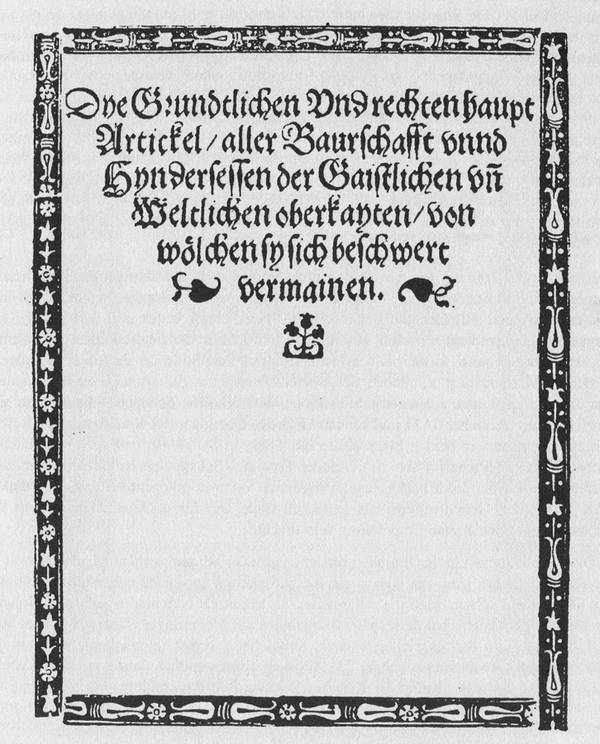 Dye Grundtlichen Vnd rechten haupt
Artickel / aller Baurschafft vnnd
Hyndersessen der Gaistlichen vñ
Weltlichen oberkayten / von
wölchen sy sich beschwert
vermainen.